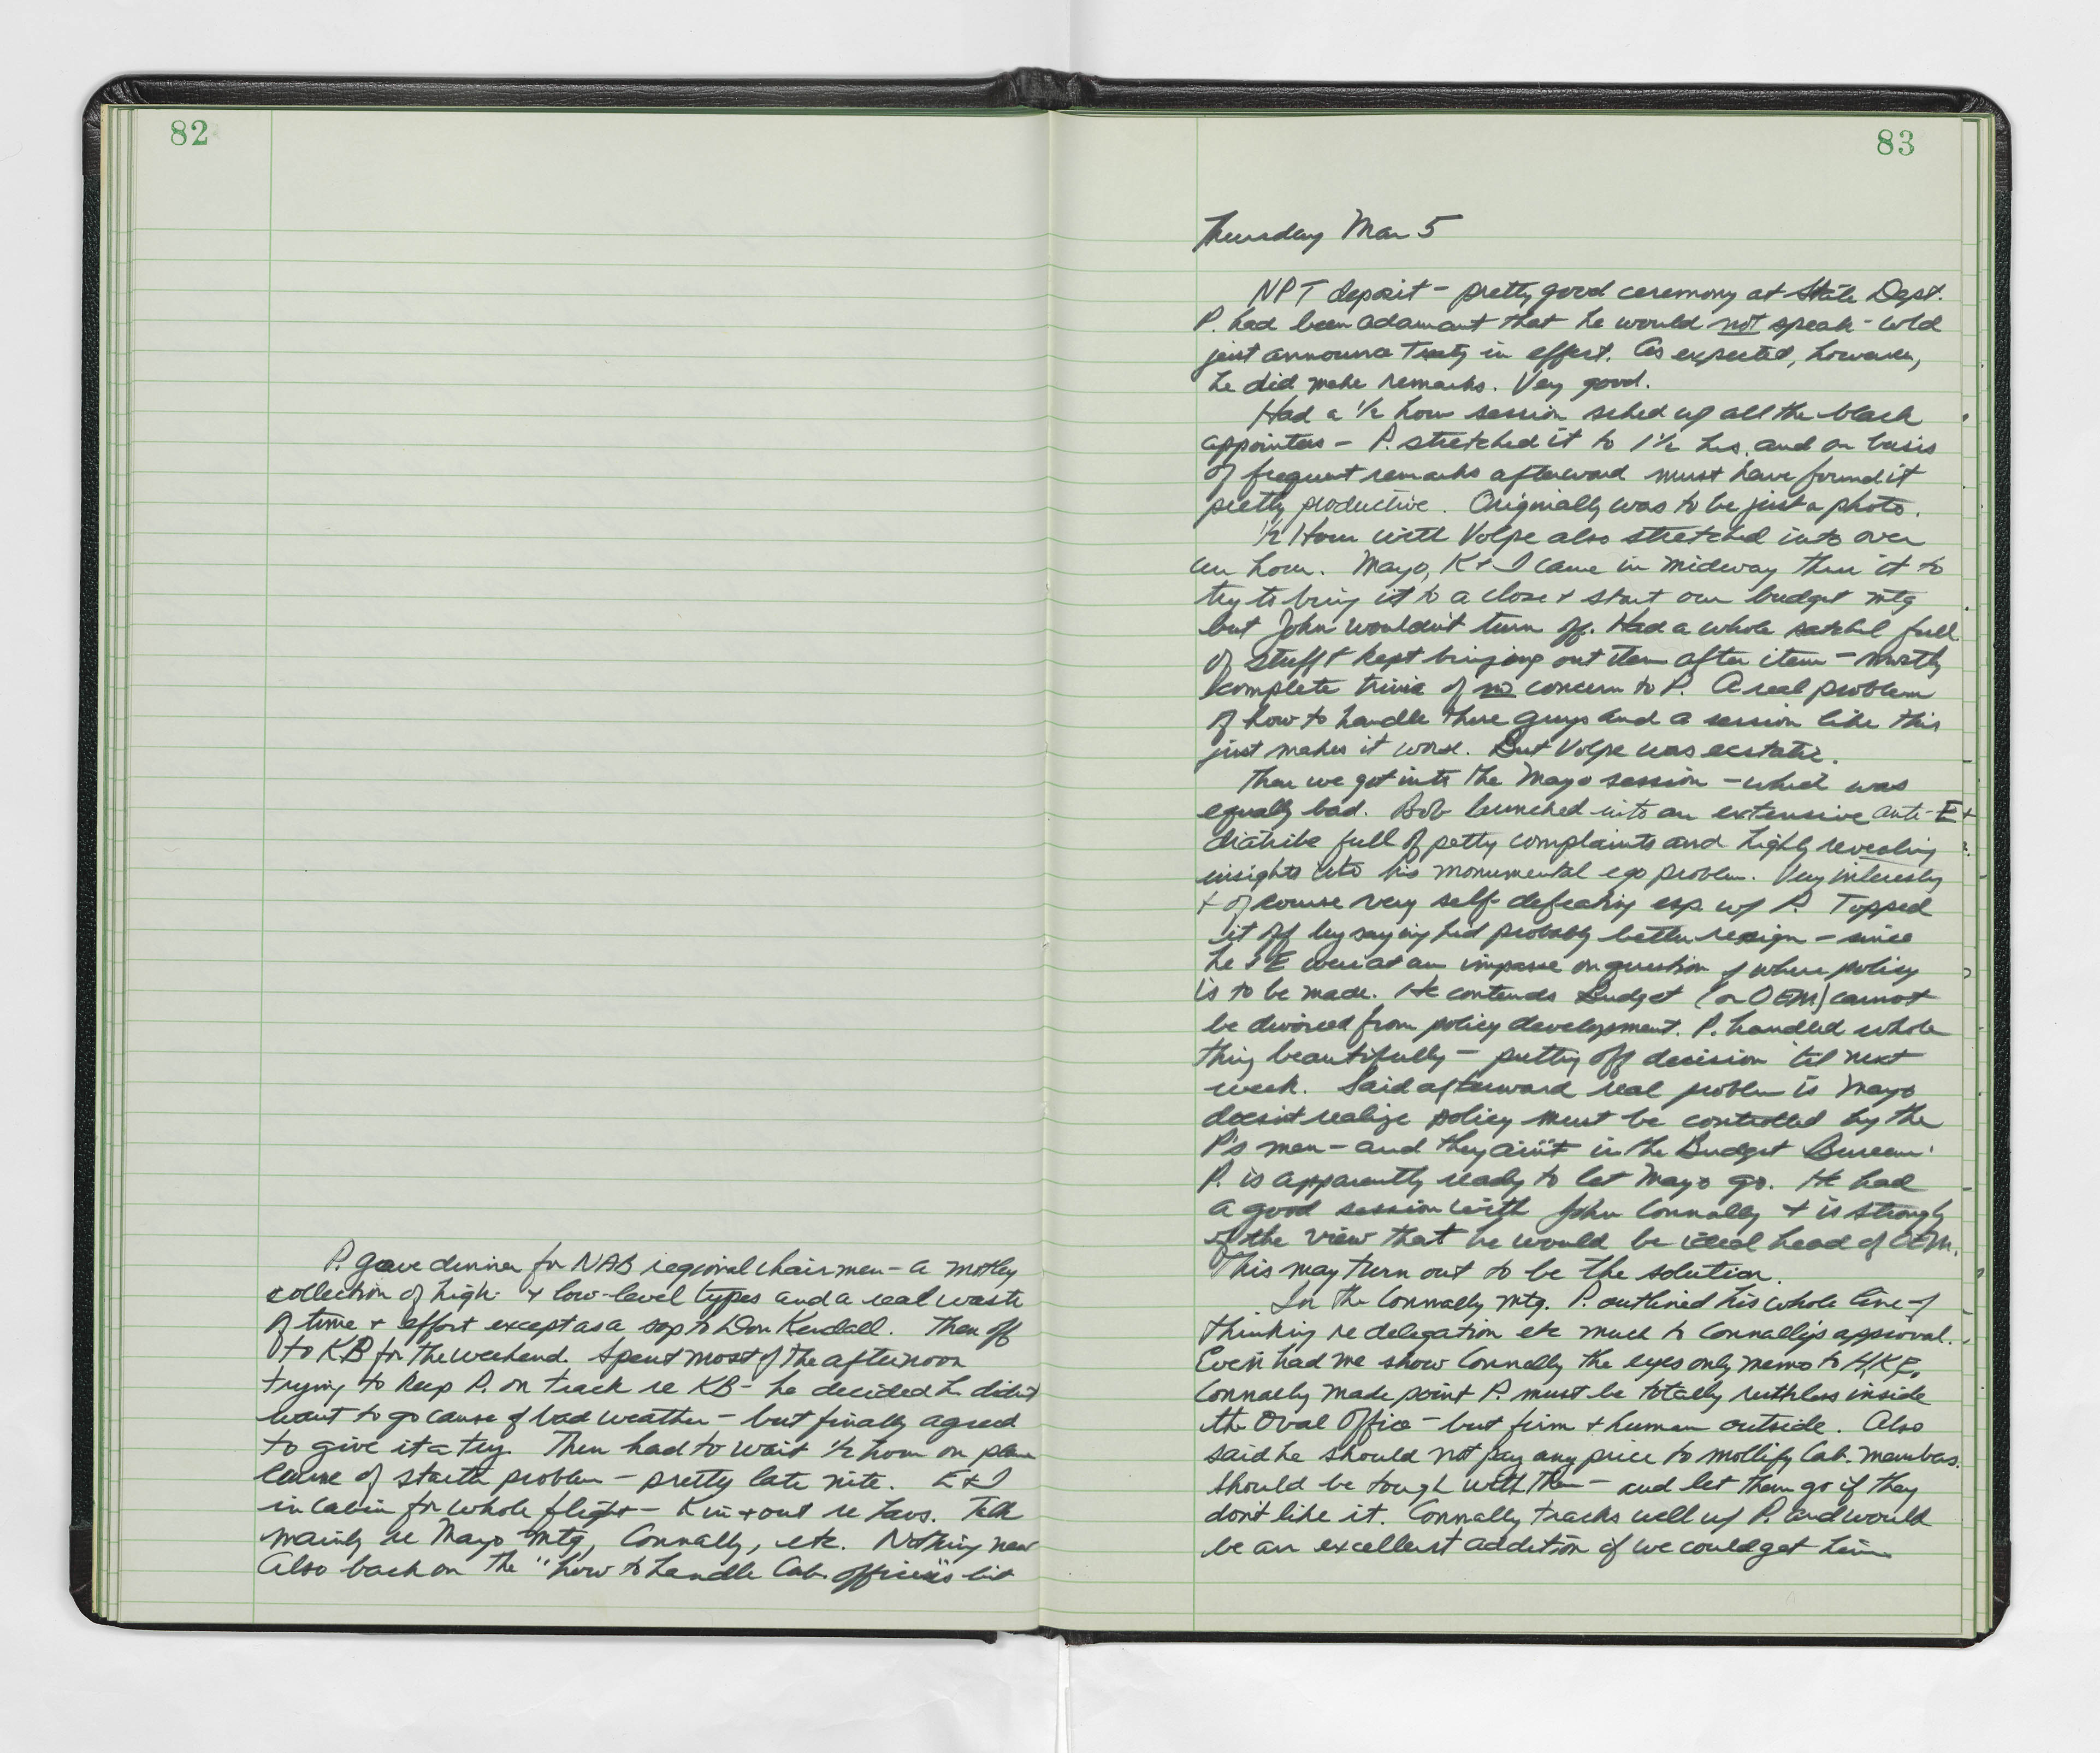 82
P. gave dinner for NAB regional chairmen – a motley
collection of high- & low-level types and a real waste
of time & effort except as a sop to Don Kendall. Then off
to KB for the weekend. Spent most of the afternoon
trying to keep P. on track re KB – he decided he didn't
want to go cause of bad weather – but finally agreed
to give it a try. Then had to wait ½ hour on plane
cause of starter problem – pretty late nite. E & I
in cabin for whole flight – K in & out re Laos. Talk
mainly re Mayo mtg, Connally, etc. Nothing new
Also back on the "how to handle Cab. officers" bit
83
Thursday Mar 5
NPT deposit – pretty good ceremony at State Dept.
P. had been adamant that he would not speak – wld
just announce Treaty in effect. As expected, however,
he did make remarks. Very good.
Had a ½ hour session sched w/ all the black
appointees – P. stretched it to 1½ hrs. and on basis
of frequent remarks afterward must have found it
pretty productive. Originally was to be just a photo.
½ Hour with Volpe also stretched into over
an hour. Mayo, K & I came in midway thru it to
try to bring it to a close & start our budget mtg
but John wouldn't turn off. Had a whole satchel full
of stuff & kept bringing out item after item – mostly
complete trivia of no concern to P. A real problem
of how to handle these guys and a session like this
just makes it worse. But Volpe was ecstatic.
Then we got into the Mayo session – which was
equally bad. Bob launched into an extensive anti-E
diatribe full of petty complaints and highly revealing
insights into his monumental ego problem. Very interesting
& of course very self-defeating esp. w/ P. Topped
it off by saying he'd probably better resign – since
he & E were at an impasse on question of where policy
is to be made. He contends Budget (or OEM) cannot
be divorced from policy development. P. handled whole
thing beautifully – putting off decision 'til next
week. Said afterward real problem is Mayo
doesn't realize policy must be controlled by the
P's men – and they ain't in the Budget Bureau.
P. is apparently ready to let Mayo go. He had
a good session with John Connally & is strongly
of the view that he would be ideal head of OEM.
This may turn out to be the solution.
In the Connally mtg. P. outlined his whole line of
thinking re delegation etc much to Connally's approval.
Even had me show Connally the eyes only memo to H,K,E.
Connally made point P. must be totally ruthless inside
the Oval Office – but firm & human outside. Also
said he should not pay any price to mollify Cab. members.
Should be tough with them – and let them go if they
don't like it. Connally tracks well w/ P. and would
be an excellent addition if we could get him